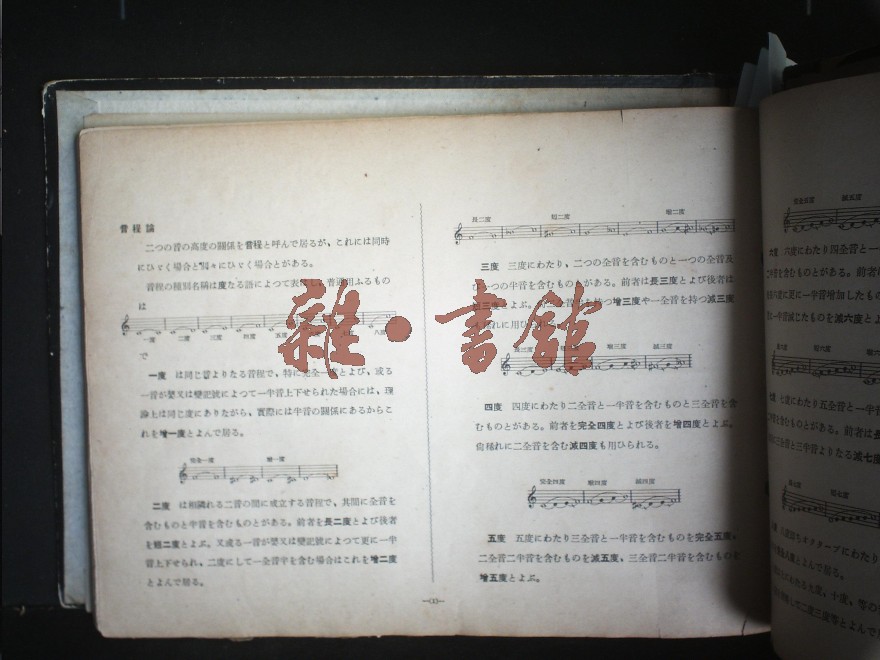 音程論
二つの音の高度の關係を音程と呼んで居るが、これには同時
にひゞく場合と別々にひゞく場合とがある。
音程の種別名稱は度なる語によつて表
普通用ふるもの
は
一度
二度
三度
四度
五度
八度
で
一度 は同じ音よりなる音程で、特に完全一度とよび、或る
一音が嬰又は變記號によつて一半音上下せられた場合には、理
論上は同じ度にありながら、實際には半音の關係にあるからこ
れを增一度とよんで居る。
完全一度 增一度
二度 は相隣れる二音の間に成立する音程で、其間に全音を
含むものと半音を含むものとがある。前者を長二度とよび後者
を短二度とよぶ。又或る一音が嬰又は變記號によつて更に一半
音上下せられ、二度にして一全音半を含む場合はこれを增二度
とよんで居る。
長二度 短二度 增二度
三度 三度にわたり、二つの全音を含むものと一つの全音及
び一つの半音を含むものとがある。前者は長三度とよび後者は
短三度とよぶ。
增三度や一全音を持つ減三度
れに用ひ
長三度
增三度 減三度
四度 四度にわたり二全音と一半音を含むものと三全音を含
むものとがある。前者を完全四度とよび後者を增四度とよぶ。
尙稀れに二全音を含む減四度も用ひられる。
完全四度 增四度 減四度
五度 五度にわたり三全音と一半音を含むものを完全五度、
二全音二半音を含むものを減五度、三全音二半音を含むものを
增五度とよぶ。
完全五度 減五度
六度 六度にわたり四全音と一
音を含むものとがある。前者
六度に更に一半音增加したもの
一半音減じたものを減六度とよ
短六度
七度 七度にわたり五全音と一半
ものとがある。前者は長
三全音と三半音よりなる減七度
長七度 短七度
オクターブにわたり
八度とよんで居る。
九度、十度、等の
二度三度等とよんで
雜・書館